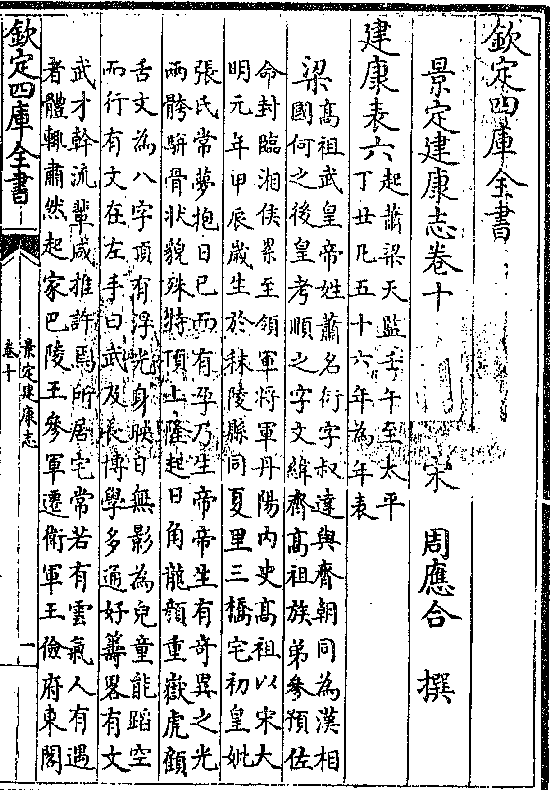 欽定四庫全書
景定建康志卷十
宋 周應合 撰
建康表六
起蕭梁天監壬午至太平
丁丑凡五十六年為年表
梁
高祖武皇帝姓蕭名衍字叔達與齊朝同為漢相
國何之後皇考順之字文緯齊高祖族弟參預佐
命封臨湘侯累至領軍將軍丹陽內史高祖以宋大
明元年甲辰歲生於秣陵縣同夏里三橋宅初皇妣
張氏常夢抱日已而有孕乃生帝帝生有奇異之光
兩骻駢骨狀貌殊特頂上隆起日角龍顏重嶽虎顧
舌文為八字頂有浮光身映日無影為兒童能蹈空
而行有文在左手曰武及長博學多通好籌畧有文
武才幹流輩咸推許焉所居宅常若有雲氣人有遇
者體輒肅然起家巴陵王參軍遷衛軍王儉府東閣
欽定四庫全書
景定建康志
卷十
一